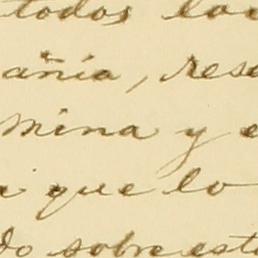 todos los
añia, rese
mina y e
i que lo
do sobre esta